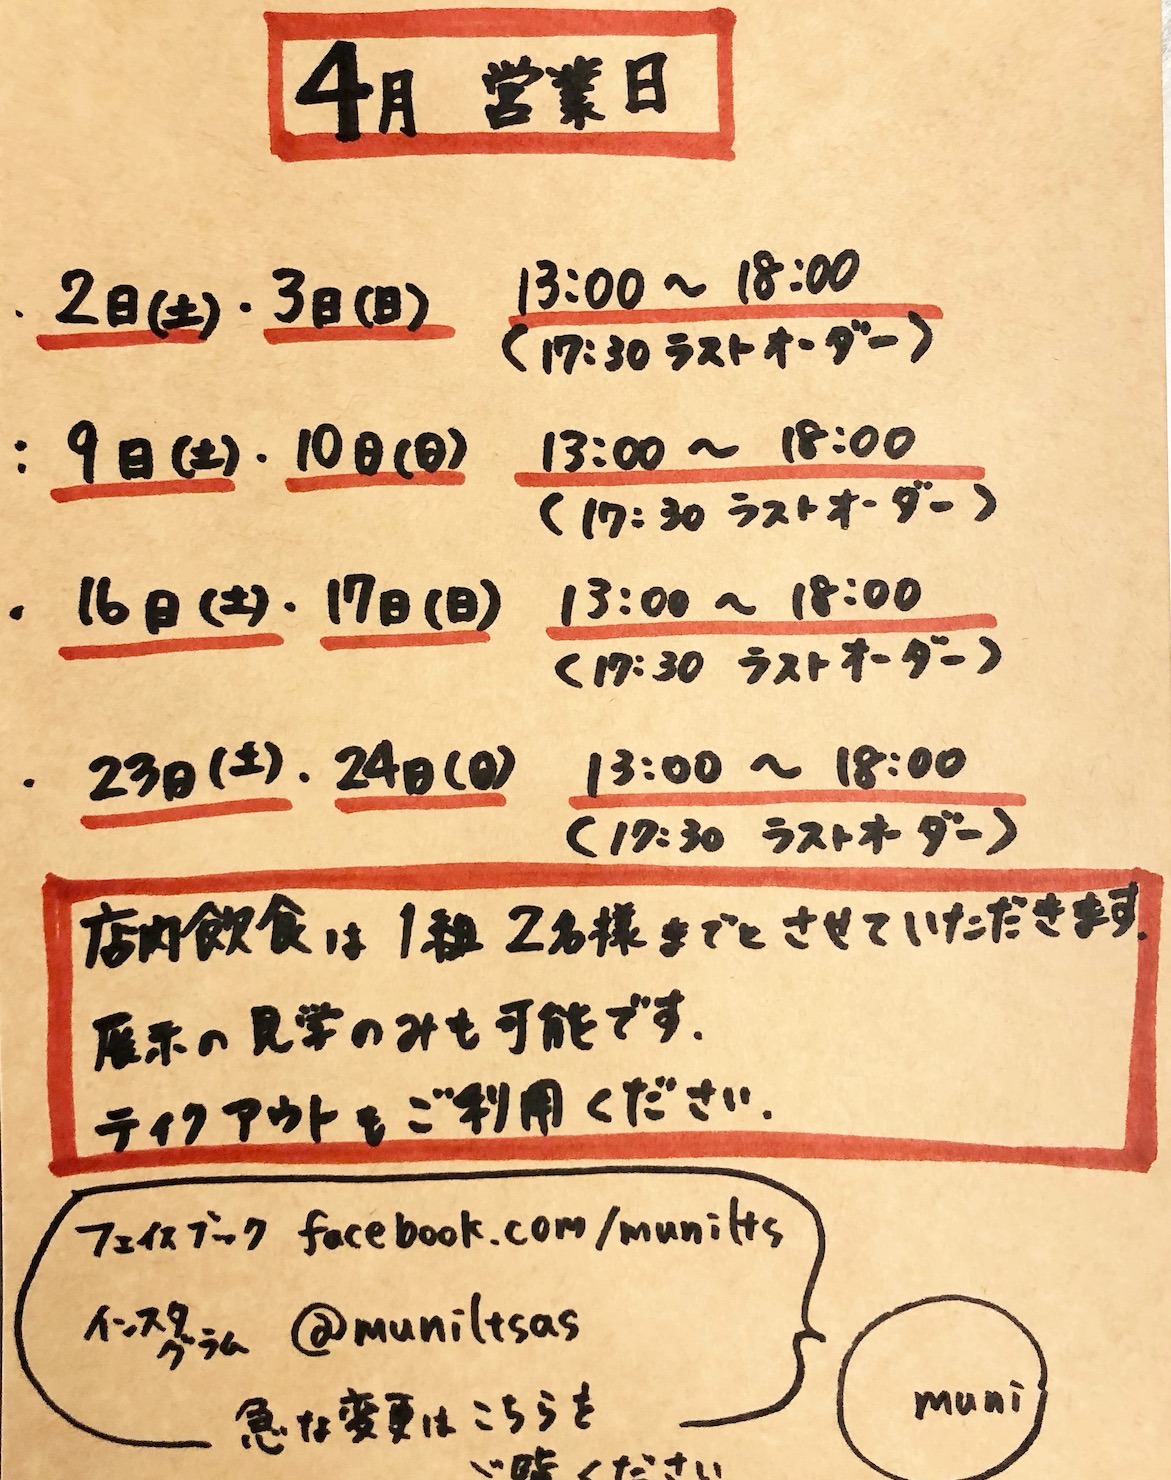 4月 営業日
・2日(土)・3日(日) 13:00〜18:00
(17:30 ラストオーダー)
: 9日(土)・10日(日) 13:00〜18:00
(17:30 ラストオーダー)
・16日(土)・17日(日) 13:00〜18:00
(17:30 ラストオーダー)
・23日(土)・24日(日) 13:00〜18:00
(17:30 ラストオーダー)
店内飲食は1組2名様までとさせていただきます.
展示の見学のみも可能です.
テイクアウトもご利用ください.
フェイスブック facebook.com/munilts
インスタグラム @muniltsas
急な変更はこちらを
ご覧ください
muni